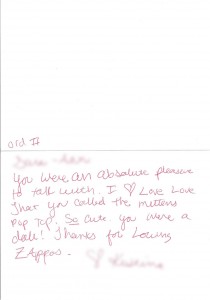 ord #
You were an absolute pleasure
to talk with. I ♡ Love Love
that you called the mittens
Pop Top. So cute. You were a
doll! Thanks for Loving
Zappos.
♡